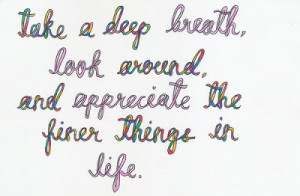 take a deep breath,
look around,
and appreciate the
finer things in
life.